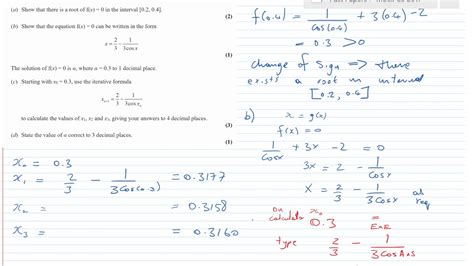 (a) Show that there is a root of f(x) = 0 in the interval [0.2, 0.4].
(2)
(b) Show that the equation f(x) = 0 can be written in the form
x = 2/3 − 1/(3cos x)
(1)
The solution of f(x) = 0 is α, where α = 0.3 to 1 decimal place.
(c) Starting with x₀ = 0.3, use the iterative formula
xₙ₊₁ = 2/3 − 1/(3cos xₙ)
to calculate the values of x₁, x₂ and x₃, giving your answers to 4 decimal places.
(3)
(d) State the value of α correct to 3 decimal places.
(1)
f(0.4) = 1/cos(0.4) + 3(0.4) − 2
= 0.3 > 0
change of sign ⇒ there
exists a root in interval
[0.2, 0.4]
b) x = g(x)
f(x) = 0
1/cosx + 3x − 2 = 0
3x = 2 − 1/cosx
x = 2/3 − 1/3cosx as
req
x₀ = 0.3
x₁ = 2/3 − 1/3cos(0.3) = 0.3177
x₂ = = 0.3158
x₃ = = 0.3160
on x₀
calculator 0.3 =
EXE
type 2/3 − 1/3cosAns